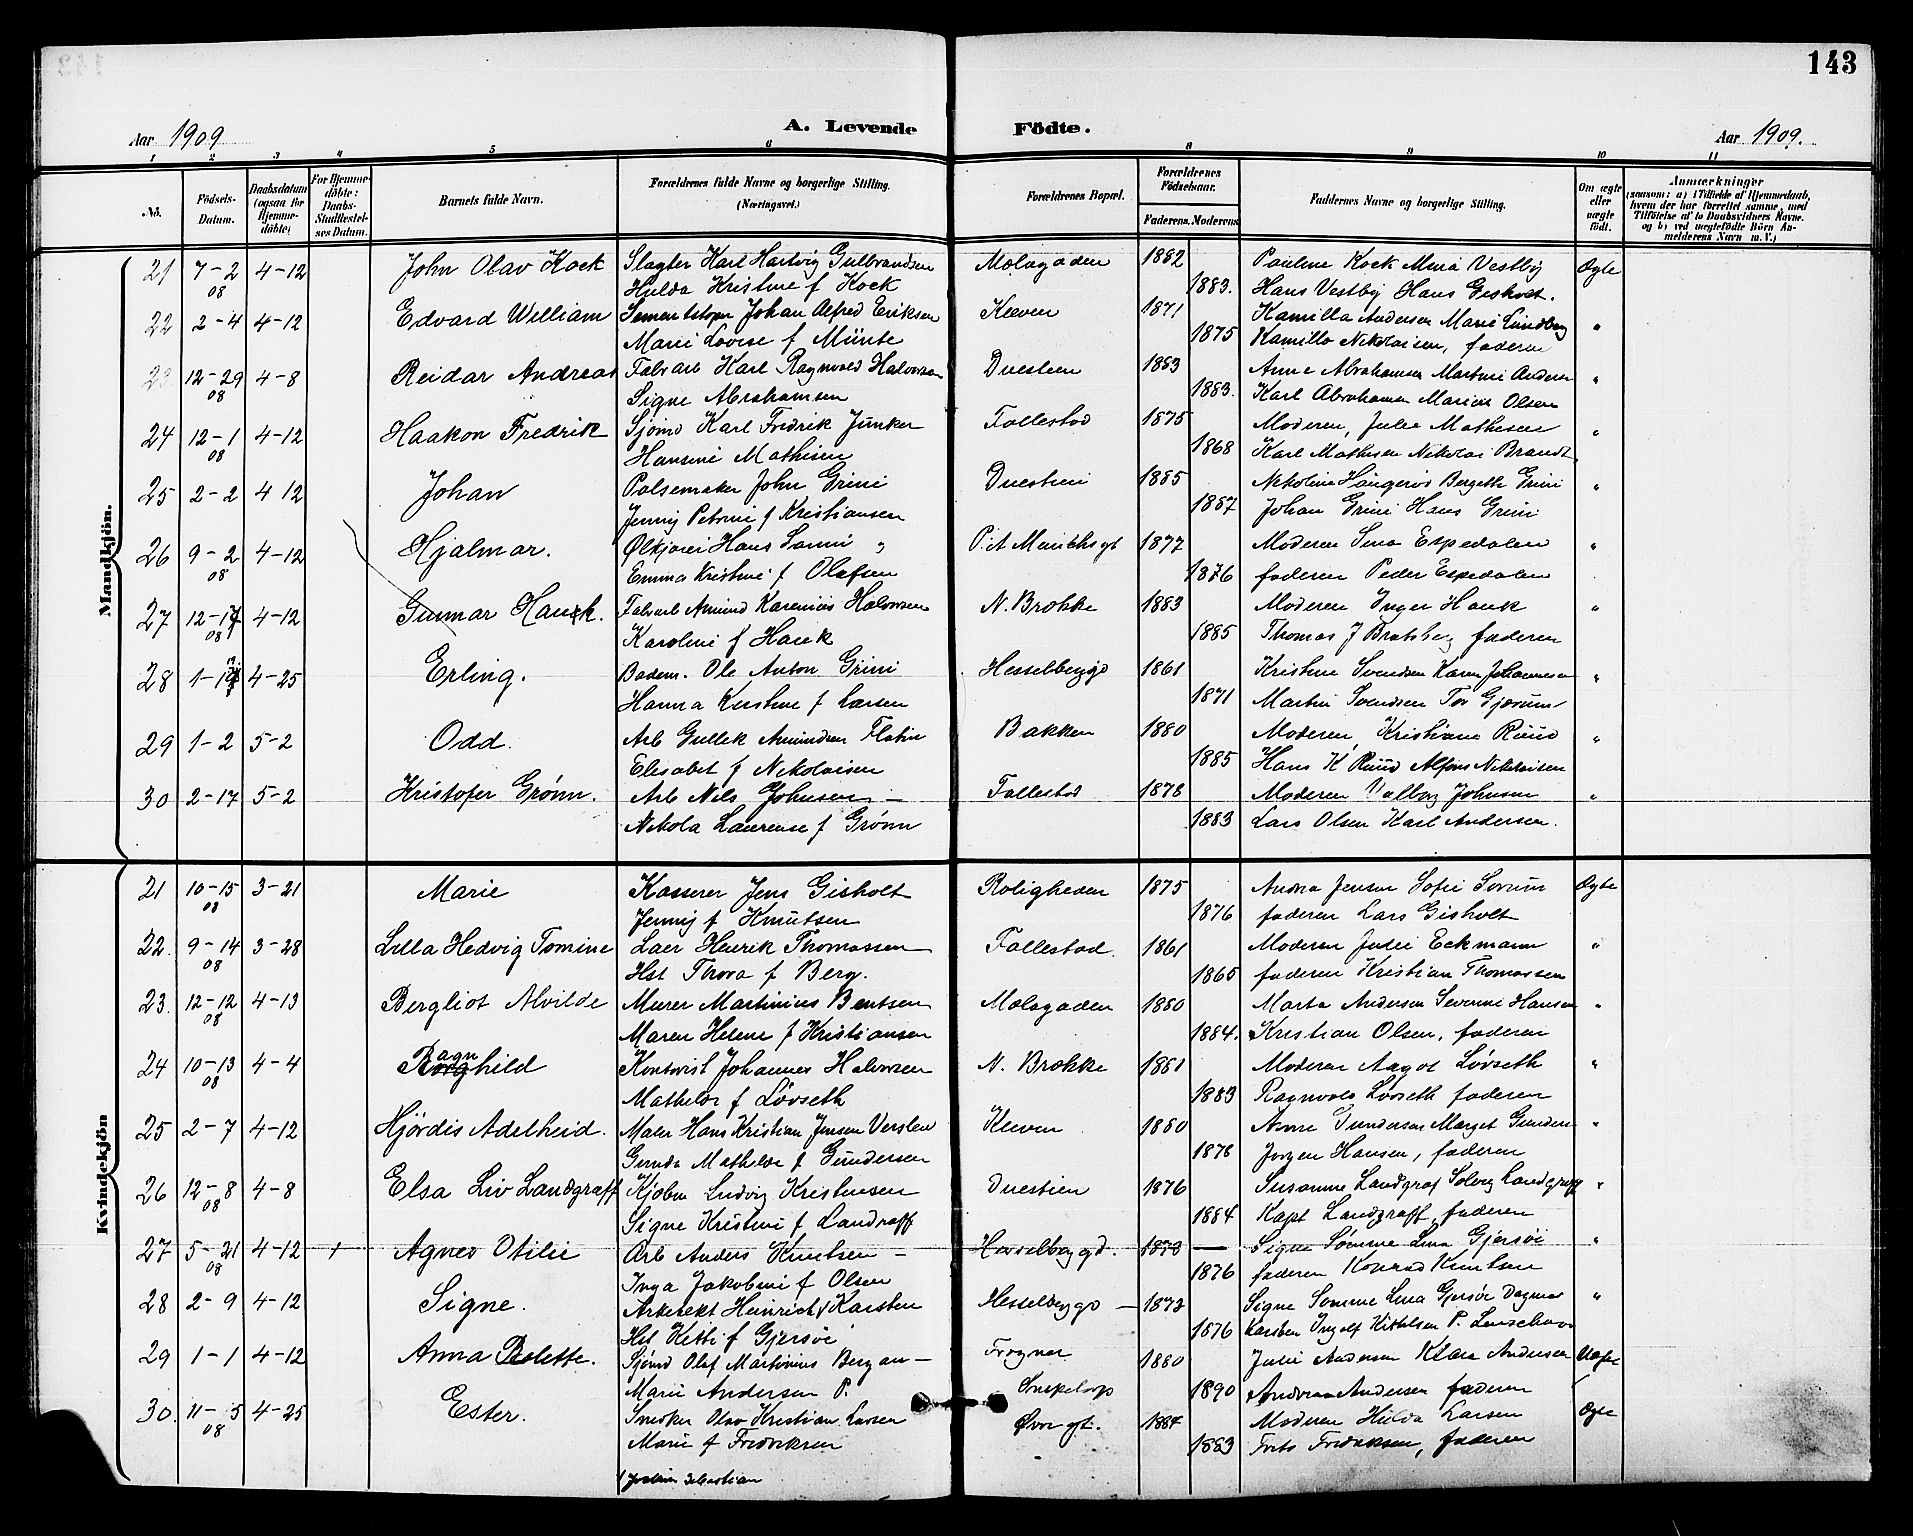 143
Aar 1909
A. Levende Födte.
Aar 1909.
1 2 3 4 5 6 8 9 10 11
No.
Födsels-Datum.
Daabsdatum (ogsaa for Hjemmedöbte)
For Hjemmedöbte: Daabs-Stadfæstelses Datum.
Barnets fulde Navn.
Forældrenes fulde Navne og borgerlige Stilling. (Næringsvei.)
Forældrenes Bopæl.
Forældrenes Födselsaar.
Faderens. Moderens.
Faddernes Navne og borgerlige Stilling.
Om ægte eller uægte födt.
Anmærkninger
(saasom: a) i Tilfælde af Hjemmedaab, hvem der har forrettet samme, med Tilföielse af to Daabsvidners Navne, og b) ved uægtefödte Börn Anmelderens Navn m. V.)
Mandkjön.
21 7-2 08 4-12 John Olav Kock Slagter Karl Hartvig Gulbrandsen Molagaden 1882 Pauline Kock Mina Vestby Ægte
Hulda Kristine f Kock 1883. Hans Vestby Hans Gisholt.
22 2-4 4-12 Edvard William Sementstøper Johan Alfred Eriksen Kleven 1871 Kamilla Andersen Marie Lundberg "
Marie Lovise f Münte 1875 Kamilla Nikolaisen, faderen
23 12-29 08 4-8 Reidar Andreas Fabrarb Karl Ragnvald Halvorsen Duestien 1883 Anna Abrahamsen Martine Andersen "
Signe Abrahamsen 1883. Karl Abrahamsen Marius Olsen
24 12-1 08 4-12 Haakon Fredrik Sjømd Karl Fredrik Junker Follestad 1875 Moderen, Julie Mathisen "
Hansine Mathisen 1868 Karl Mathisen Nikolai Brandt
25 2-2 4 12 Johan Pølsemaker John Grini Duestien 1885 Nikoline Haugerød Bergette Grini "
Jenny Petrine f Kristiansen 1887 Johan Grini Hans Grini
26 9-2 08 4-12 Hjalmar. Ølkjører Hans Sanni P.A Munchsgt 1877 Moderen Sina Espedalen "
Emma Kristine f Olafsen 1876 faderen Peder Espedalen
27 12-17 08 4-12 Gunnar Hauk. Fabrarb Amund Karenius Halvorsen N. Brokke 1883 Moderen Inger Hauk "
Karoline f Hauk 1885 Thomas J Bratsberg faderen
28 4-25 Erling. Badem. Ole Anton Grini Hesselberggd 1861 Kristine Svendsen Karen Johannesen "
Hanna Kristine f Larsen 1871 Martin Svendsen Tor Gjørum
29 1-2 5-2 Odd. Arb Gullik Amundsen Flatin Bakken 1880 Moderen Kristiane Ruud "
Elisabet f Nikolaisen 1885 Hans K Ruud Alfons Nikolaisen
30 2-17 5-2 Kristofer Grønn. Arb Nils Johnsen - Follestad 1878 Moderen Valborg Johnsen "
Nikola Laurense f Grønn 1883 Lars Olsen Karl Andersen.
Kvindekjön
21 10-15 08 3-21 Marie Kasserer Jens Gisholt Roligheden 1875 Andrea Jensen Sofie Sørum Ægte
Jenny f Knutsen 1876 faderen Lars Gisholt
22. 9-14 08 3-28 Lilla Hedvig Tomine Laer Henrik Thomassen Follestad. 1861 Moderen Julie Eckmann "
Hst Thora f Berg. 1865 faderen Kristian Thomassen
23. 12-12 08 4-13 Bergliot Alvilde Murer Martinius Bentsen Molagaden 1880 Marta Andersen Severine Hansen "
Maren Helene f Kristiansen 1884. Kristian Olsen, faderen
24 10-13 08 4-4 Ragnhild Kontorist Johannes Halvorsen N. Brokke 1881 Moderen Aagot Løvseth "
Mathilde f Løvseth 1883 Ragnvald Løvseth faderen
25 2-7 4-12 Hjördis Adelheid. Maler Hans Kristian Jensen Verslev Kleven 1880 Anne Gundersen Marget Gundersen "
Gunda Mathilde f Gundersen 1878 Jørgen Hansen, faderen
26 12-8 08 4-8 Elsa Liv Landgraff Kjøbm Ludvig Kristensen Duestien 1876 Susanne Landgraf Solveg Landgraff "
Signe Kristine f Landraff 1884 Kapt Landgraff, faderen
27 5-21 08 4-12 1 Agnes Otilie Arb Anders Knutsen - Hesselberggd. 1873 - Signe Sømme Lina Gjersøe "
Inga Jakobine f Olsen 1876 faderen Konrad Knutsen
28 2-9 4-12 Signe. Arkitekt Heinrich 1/ Karsten Hesselberggd - 1873 Signe Sømme Lina Gjersøe Dagmar "
Hst Kitti f Gjersøe 1876 Karsten Ingolf Kittelsen P.
29 1-1 4-12 Anna Bolette. Sjømd Olaf Martinius Bergan - Frogner 1880 Julie Andersen Klara Andersen Uægte
Marie Andersen P. 1890 Andreas Andersen faderen
30. 11-5 08 4-25 Ester. Snedker Olav Kristian Larsen Øvregt. 1884 Moderen Hilda Larsen Ægte
Marie f Fredriksen 1883 Frits Fredriksen, faderen
1/ Sebastian